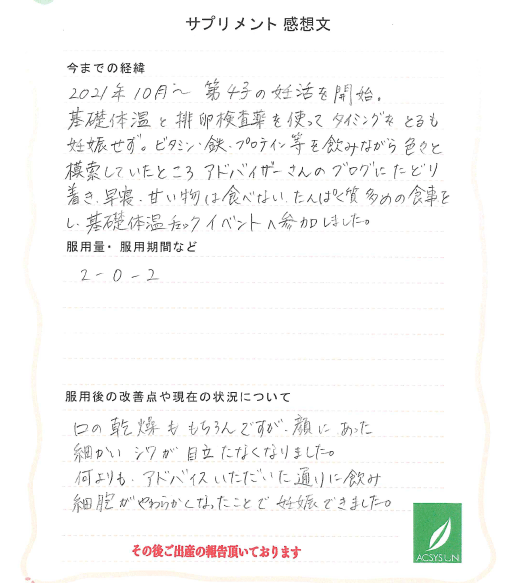 サプリメント 感想文
今までの経緯
2021年10月〜 第4子の妊活を開始。
基礎体温と排卵検査薬を使ってタイミングをとるも
妊娠せず。ビタミン・鉄・プロテイン等を飲みながら色々と
模索していたところ、アドバイザーさんのブログにたどり
着き、早寝・甘い物は食べない、たんぱく質多めの食事を
し、基礎体温チェックイベントへ参加しました。
服用量・服用期間など
2-0-2
服用後の改善点や現在の状況について
口の乾燥ももちろんですが、顔にあった
細かいシワが目立たなくなりました。
何よりも、アドバイスいただいた通りに飲み
細胞がやわらかくなったことで妊娠できました。
その後ご出産の報告頂いております
ACSYSUNI